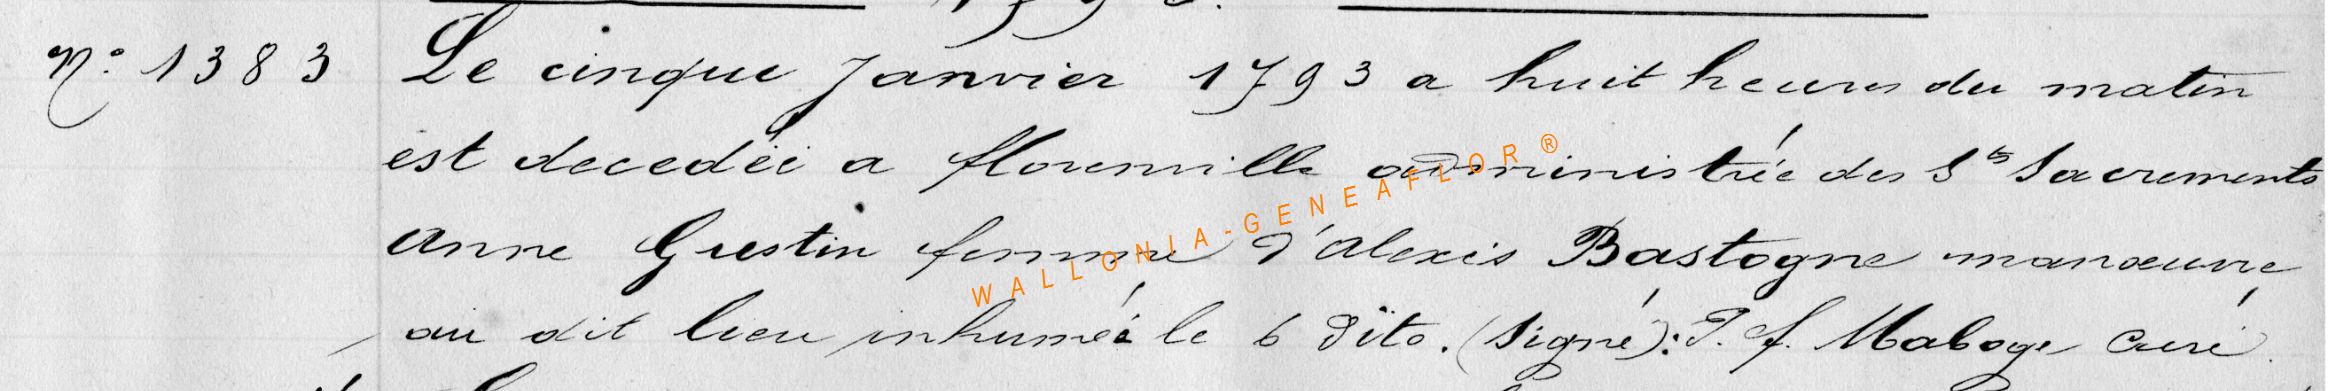 N° 1383 Le cinque Janvier 1793 a huit heures du matin
est decedée a florenville administrée des Sts Sacrements
Anne Gustin femme d'Alexis Bastogne manœuvre
au dit lieu inhumée le 6 dito. (signé): J. f. Maboge Curé.
WALLONIA-GENEAFLOR ®